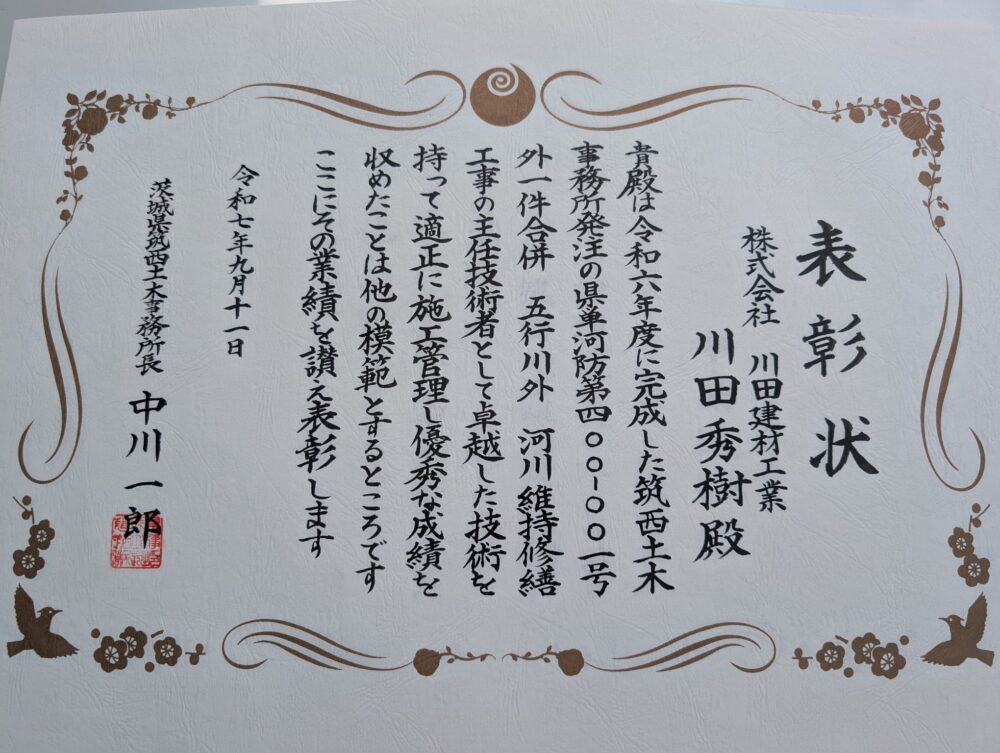 表彰状
株式会社 川田建材工業
川田秀樹殿
貴殿は令和六年度に完成した筑西土木
事務所発注の県単河防第四〇〇-〇〇一号
外一件合併 五行川外 河川維持修繕
工事の主任技術者として卓越した技術を
持って適正に施工管理し優秀な成績を
収めたことは他の模範とするところです
ここにその業績を讃え表彰します
令和七年九月十一日
茨城県筑西土木事務所長 中川一郎